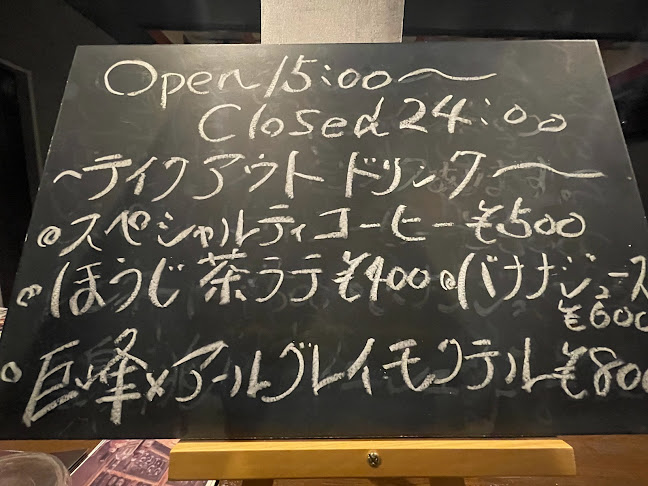 Open 15:00～
Closed 24:00
～テイクアウトドリンク～
◎スペシャルティコーヒー ¥500
◎ほうじ茶ラテ ¥400 ◎バナナジュース
¥600
○巨峰×アールグレイモクテル ¥800